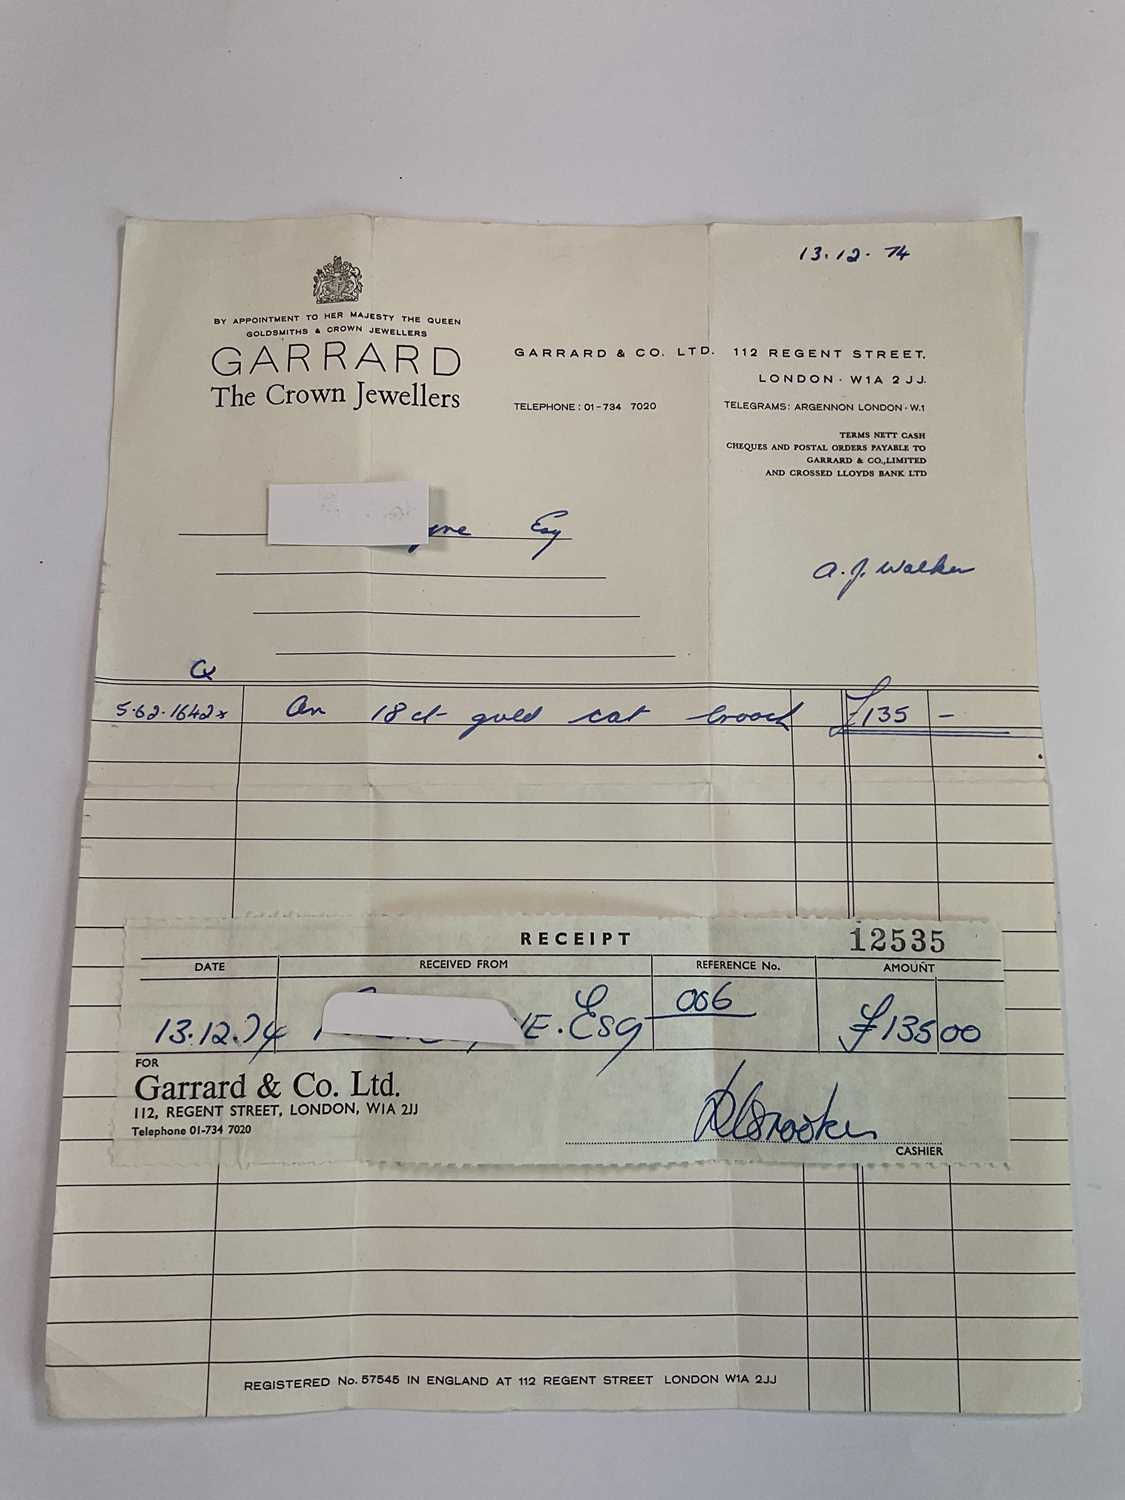 13.12.74
BY APPOINTMENT TO HER MAJESTY THE QUEEN
GOLDSMITHS & CROWN JEWELLERS
GARRARD
The Crown Jewellers
GARRARD & CO. LTD. 112 REGENT STREET,
LONDON · W1A 2JJ.
TELEPHONE: 01-734 7020 TELEGRAMS: ARGENNON LONDON · W.1
TERMS NETT CASH
CHEQUES AND POSTAL ORDERS PAYABLE TO
GARRARD & CO., LIMITED
AND CROSSED LLOYDS BANK LTD
Esq
A. J. Walker
An 18 ct gold cat brooch £135 –
RECEIPT 12535
DATE RECEIVED FROM REFERENCE No. AMOUNT
13.12.74 NE. Esq 006 £135 00
FOR
Garrard & Co. Ltd.
112, REGENT STREET, LONDON, W1A 2JJ
Telephone 01-734 7020
CASHIER
REGISTERED No. 57545 IN ENGLAND AT 112 REGENT STREET LONDON W1A 2JJ